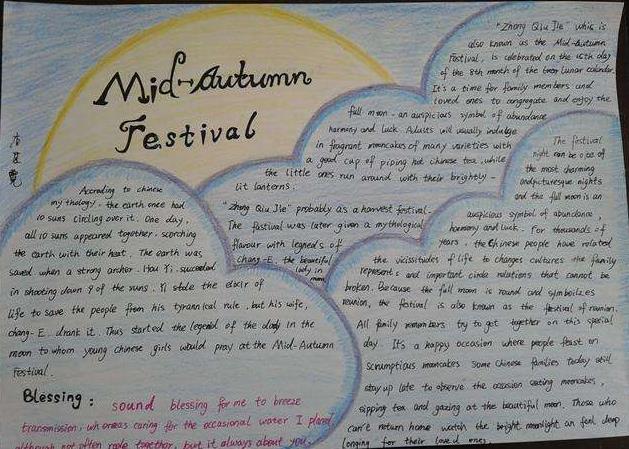 Mid-Autumn
Festival
"Zhong Qiu Jie" whic is
also known as the Mid-Autumn
Festival, is celebrated on the 15th day
of the 8th month of the lunar calendar.
It's a time for family members and
loved ones to congregate and enjoy the
full moon - an auspicious symbol of abundance
harmony and luck. Adults will usually indulge
in fragrant mooncakes of many varieties with
a good cup of piping hot chinese tea, while
the little ones run around with their brightly-
lit lanterns.
"Zhong Qiu Jie" probably as a harvest festival.
The festival was later given a mythological
flavour with legneds of
Chang-E, the beautiful
lady in
moon
According to chinese
mythology. the earth once had
10 suns circling over it. One day,
all 10 suns appeared together, scorching
the earth with their heat. The earth was
saved when a strong archer. Hou Yi. succeeded
in shooting down 9 of the suns. Yi stole the elixir of
life to save the people from his tyrannical rule. but his wife,
chang-E. drank it. Thus started the legend of the lady in the
moon to whom young Chinese girls would pray at the Mid-Autumn
Festival.
The festival
night can be one of
the most charming
and picturesque nights
and the full moon is an
auspicious symbol of abundance,
harmony and luck. For thousands of
years, the Chinese people have related
the vicissitudes of life to changes cultures the family
represents and important circle relations that cannot be
broken. Because the full moon is round and symbolizes
reunion, the festival is also known as the festival of reunion.
All family members try to get together on this special
day. It's a happy occasion where people feast on
scrumptious mooncakes some Chinese families today still
stay up late to observe the occasion eating mooncakes,
sipping tea and gazing at the beautiful moon. Those who
can't return home watch the bright moonlight an feel deep
longing for their loved ones.
Blessing:
sound blessing for me to breeze
transmission, whereas caring for the occasional water I pland
although not often role together, but it always about you.